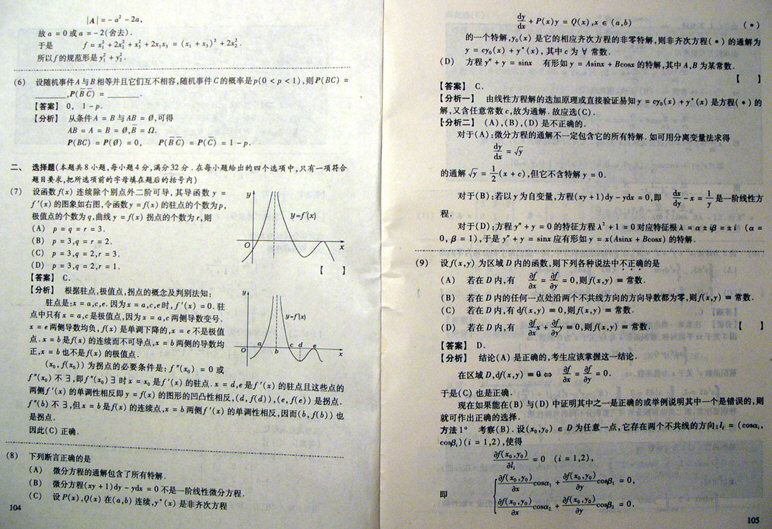 |A| = -a² - 2a,
故 a = 0 或 a = -2(舍去).
于是 f = x₁² + 2x₂² + x₃² + 2x₁x₃ = (x₁ + x₃)² + 2x₂².
所以 f 的规范形是 y₁² + y₂².
(6) 设随机事件 A 与 B 相等并且它们互不相容,随机事件 C 的概率是 p(0 < p < 1),则 P(BC) =
______,P(B̄ C̄) = ______.
【答案】 0, 1 - p.
【分析】 从条件 A = B 与 AB = Ø,可得
AB = A = B = Ø, B̄ = Ω.
P(BC) = P(Ø) = 0, P(B̄ C̄) = P(C̄) = 1 - p.
二、选择题(本题共 8 小题,每小题 4 分,满分 32 分. 在每小题给出的四个选项中,只有一项符合
题目要求,把所选项前的字母填在题后的括号内)
(7) 设函数 f(x) 连续除个别点外二阶可导,其导函数 y =
f′(x) 的图象如右图,令函数 y = f(x) 的驻点的个数为 p,
极值点的个数为 q,曲线 y = f(x) 拐点的个数为 r,则
(A) p = q = r = 3.
(B) p = 3, q = r = 2.
(C) p = 3, q = 2, r = 3.
(D) p = 3, q = 2, r = 1.
【 】
y
y=f′(x)
O
x
【答案】 C.
【分析】 根据驻点,极值点,拐点的概念及判别法知:
驻点是:x = a,c,e. 因为 x = a,c,e 时, f′(x) = 0. 驻
点中只有 x = a,c 是极值点,因为 x = a,c 两侧导数变号.
x = e 两侧导数均负,f(x) 是单调下降的,x = e 不是极值
点. x = b 是 f(x) 的连续而不可导点,x = b 两侧的导数均
正,x = b 也不是 f(x) 的极值点.
y
y=f′(x)
O
a
b
c
d
e
x
(x₀, f(x₀)) 为拐点的必要条件是: f″(x₀) = 0 或
f″(x₀) 不 ∃,即 f″(x₀) ∃ 时 x = x₀ 是 f′(x) 的驻点. x = d,e 是 f′(x) 的驻点且这些点的
两侧 f′(x) 的单调性相反即 y = f(x) 的图形的凹凸性相反,(d, f(d)),(e, f(e)) 是拐点.
f″(b) 不 ∃,但 x = b 是 f(x) 的连续点,x = b 两侧 f′(x) 的单调性相反,因而(b, f(b)) 也
是拐点.
因此(C) 正确.
(8) 下列断言正确的是
(A) 微分方程的通解包含了所有特解.
(B) 微分方程(xy + 1)dy - ydx = 0 不是一阶线性微分方程.
(C) 设 P(x),Q(x) 在(a,b) 连续,y*(x) 是非齐次方程
104
dy/dx + P(x)y = Q(x), x ∈ (a,b) (*)
的一个特解,y₀(x) 是它的相应齐次方程的非零特解,则非齐次方程(*) 的通解为
y = cy₀(x) + y*(x), 其中 c 为 ∀ 常数.
(D) 方程 y″ + y = sinx 有形如 y = Asinx + Bcosx 的特解,其中 A,B 为某常数.
【 】
【答案】 C.
【分析一】 由线性方程解的迭加原理或直接验证易知 y = cy₀(x) + y*(x) 是方程(*) 的
解,又含任意常数 c,故为通解. 故应选(C).
【分析二】 (A),(B),(D) 是不正确的.
对于(A):微分方程的通解不一定包含它的所有特解. 如可用分离变量法求得
dy/dx = √y
的通解 √y = 1/2(x + c),但它不含特解 y = 0.
对于(B):若以 y 为自变量,方程(xy + 1)dy - ydx = 0,即 dx/dy - x = 1/y 是一阶线性方
程.
对于(D):方程 y″ + y = 0 的特征方程 λ² + 1 = 0 对应特征根 λ = α ± iβ = ± i (α =
0, β = 1),于是 y″ + y = sinx 应有形如 y = x(Asinx + Bcosx) 的特解.
(9) 设 f(x,y) 为区域 D 内的函数,则下列各种说法中不正确的是
(A) 若在 D 内,有 ∂f/∂x = ∂f/∂y = 0,则 f(x,y) = 常数.
(B) 若在 D 内的任何一点处沿两个不共线方向的方向导数都为零,则 f(x,y) = 常数.
(C) 若在 D 内,有 df(x,y) = 0,则 f(x,y) = 常数.
(D) 若在 D 内,有 ∂f/∂x x + ∂f/∂y y = 0,则 f(x,y) = 常数.
【 】
【答案】 D.
【分析】 结论(A) 是正确的,考生应该掌握这一结论.
在区域 D,df(x,y) = 0 ⇔ ∂f/∂x = ∂f/∂y = 0.
于是(C) 也是正确.
现在如果能在(B) 与(D) 中证明其中之一是正确的或举例说明其中一个是错误的,则
就可作出正确的选择.
方法1° 考察(B). 设(x₀,y₀) ∈ D 为任意一点,它存在两个不共线的方向:lᵢ = (cosαᵢ,
cosβᵢ)(i = 1,2),使得
∂f(x₀,y₀)/∂lᵢ = 0 (i = 1,2),
即
∂f(x₀,y₀)/∂x cosα₁ + ∂f(x₀,y₀)/∂y cosβ₁ = 0,
∂f(x₀,y₀)/∂x cosα₂ + ∂f(x₀,y₀)/∂y cosβ₂ = 0.
105